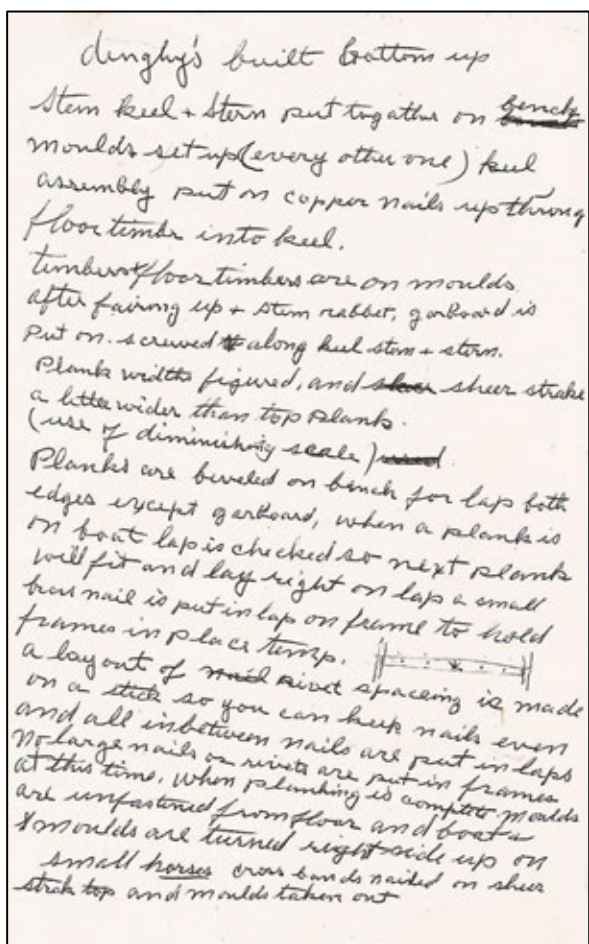 dinghy's built bottom up
Stem keel + Stern put together on bench
moulds set up (every other one) keel
assembly put on copper nails up throug
floor timbr into keel.
timbers + floor timbers are on moulds.
after fairing up + stem rabbet, garboard is
put on. screwed along keel stem + stern.
Plank widths figured, and sheer strake
a little wider than top plank.
(use of diminishing scale)
Planks are beveled on bench for lap both
edges except garboard, when a plank is
on boat lap is checked so next plank
will fit and lay right on lap a small
brass nail is put in lap on frame to hold
frames in place temp.
a layout of rivet spacing is made
on a stick so you can keep nails even
and all inbetween nails are put in laps
No large nails or rivets are put in frames
at this time, when planking is complete moulds
are unfastened from floor and boat
+ moulds are turned right side up on
small horses cross bands nailed on sheer
strak top and moulds taken out